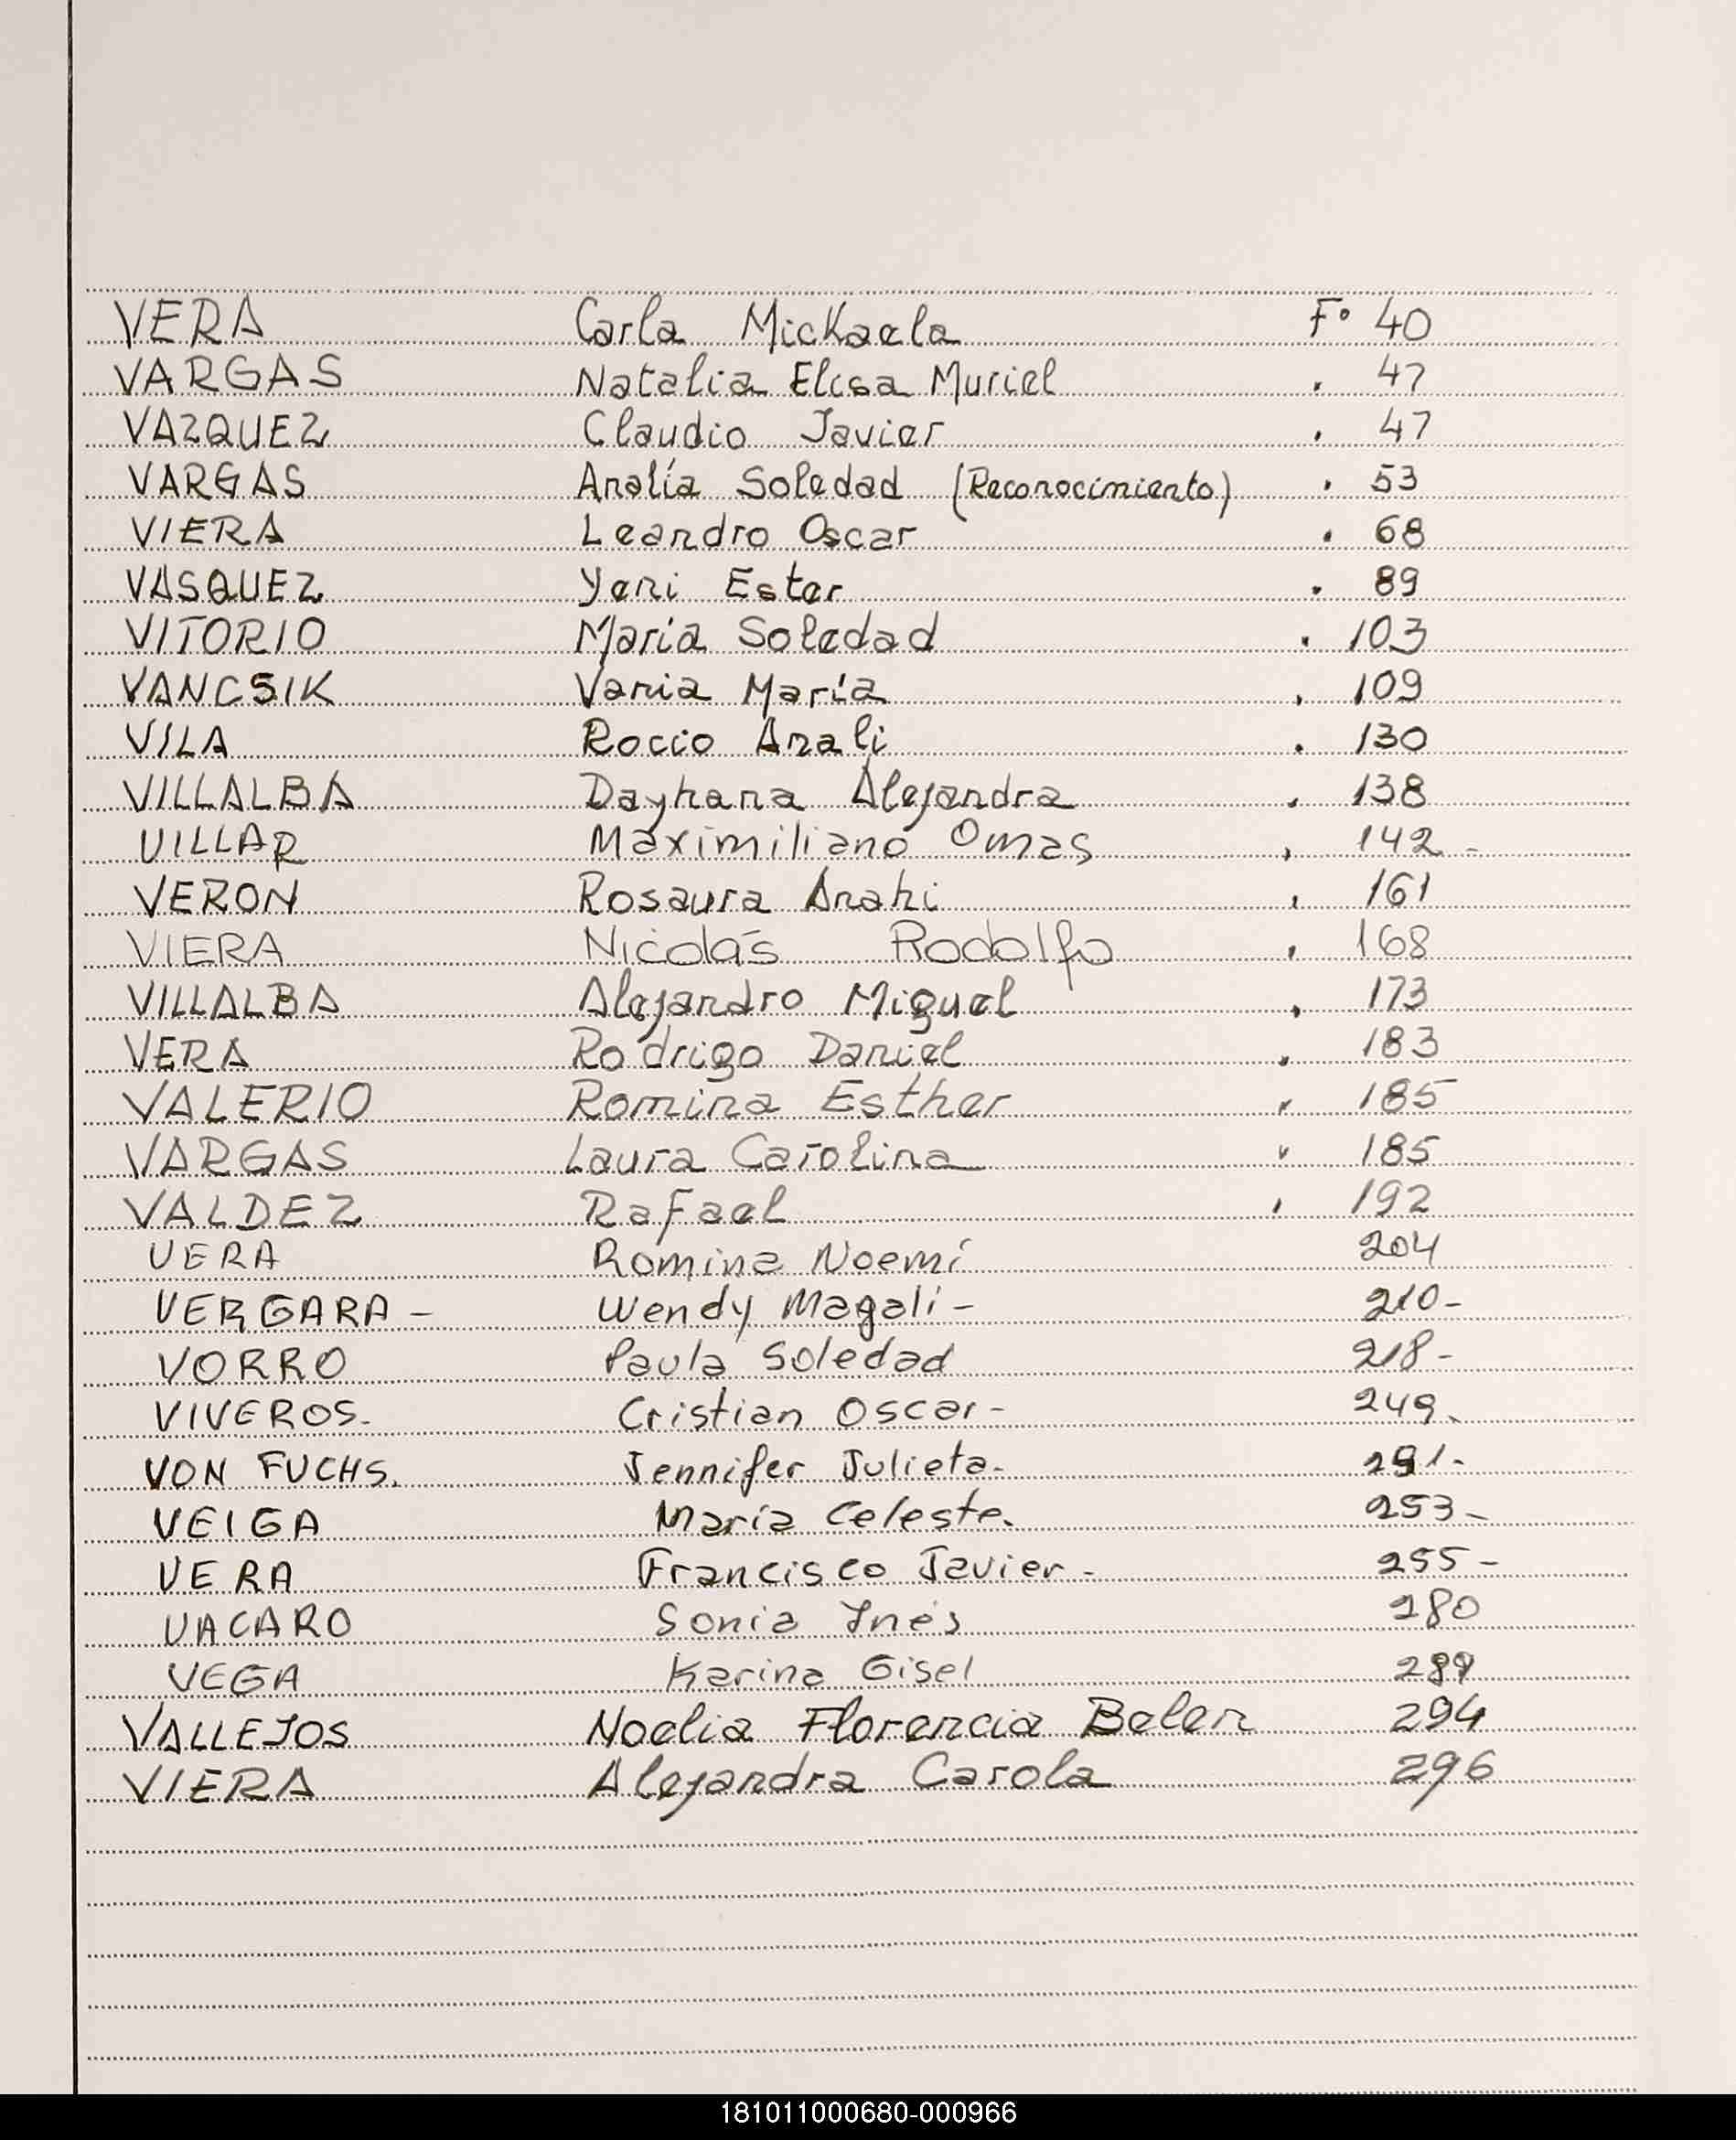 VERA Carla Mickaela Fº 40
VARGAS Natalia Elisa Muriel . 47
VAZQUEZ Claudio Javier . 47
VARGAS Analía Soledad (Reconocimiento) . 53
VIERA Leandro Oscar . 68
VASQUEZ Yeni Ester . 89
VITORIO María Soledad . 103
VANCSIK Vania María . 109
VILA Rocio Anali . 130
VILLALBA Dayhana Alejandra . 138
VILLAR Maximiliano Omas , 142 -
VERON Rosaura Anahi , 161
VIERA Nicolás Rodolfo , 168
VILLALBA Alejandro Miguel , 173
VERA Rodrigo Daniel . 183
VALERIO Romina Esther " 185
VARGAS Laura Carolina " 185
VALDEZ Rafael , 192
VERA Romina Noemí 204
VERGARA - Wendy Magali - 210-
VORRO Paula Soledad 218-
VIVEROS- Cristian Oscar - 249.
VON FUCHS. Jennifer Julieta-
VEIGA María Celeste. 253-
VERA Francisco Javier - 255-
VACARO Sonia Inés 280
VEGA Karina Gisel
VALLEJOS Noelia Florencia Belen 294
VIERA Alejandra Carola 296
181011000680-000966